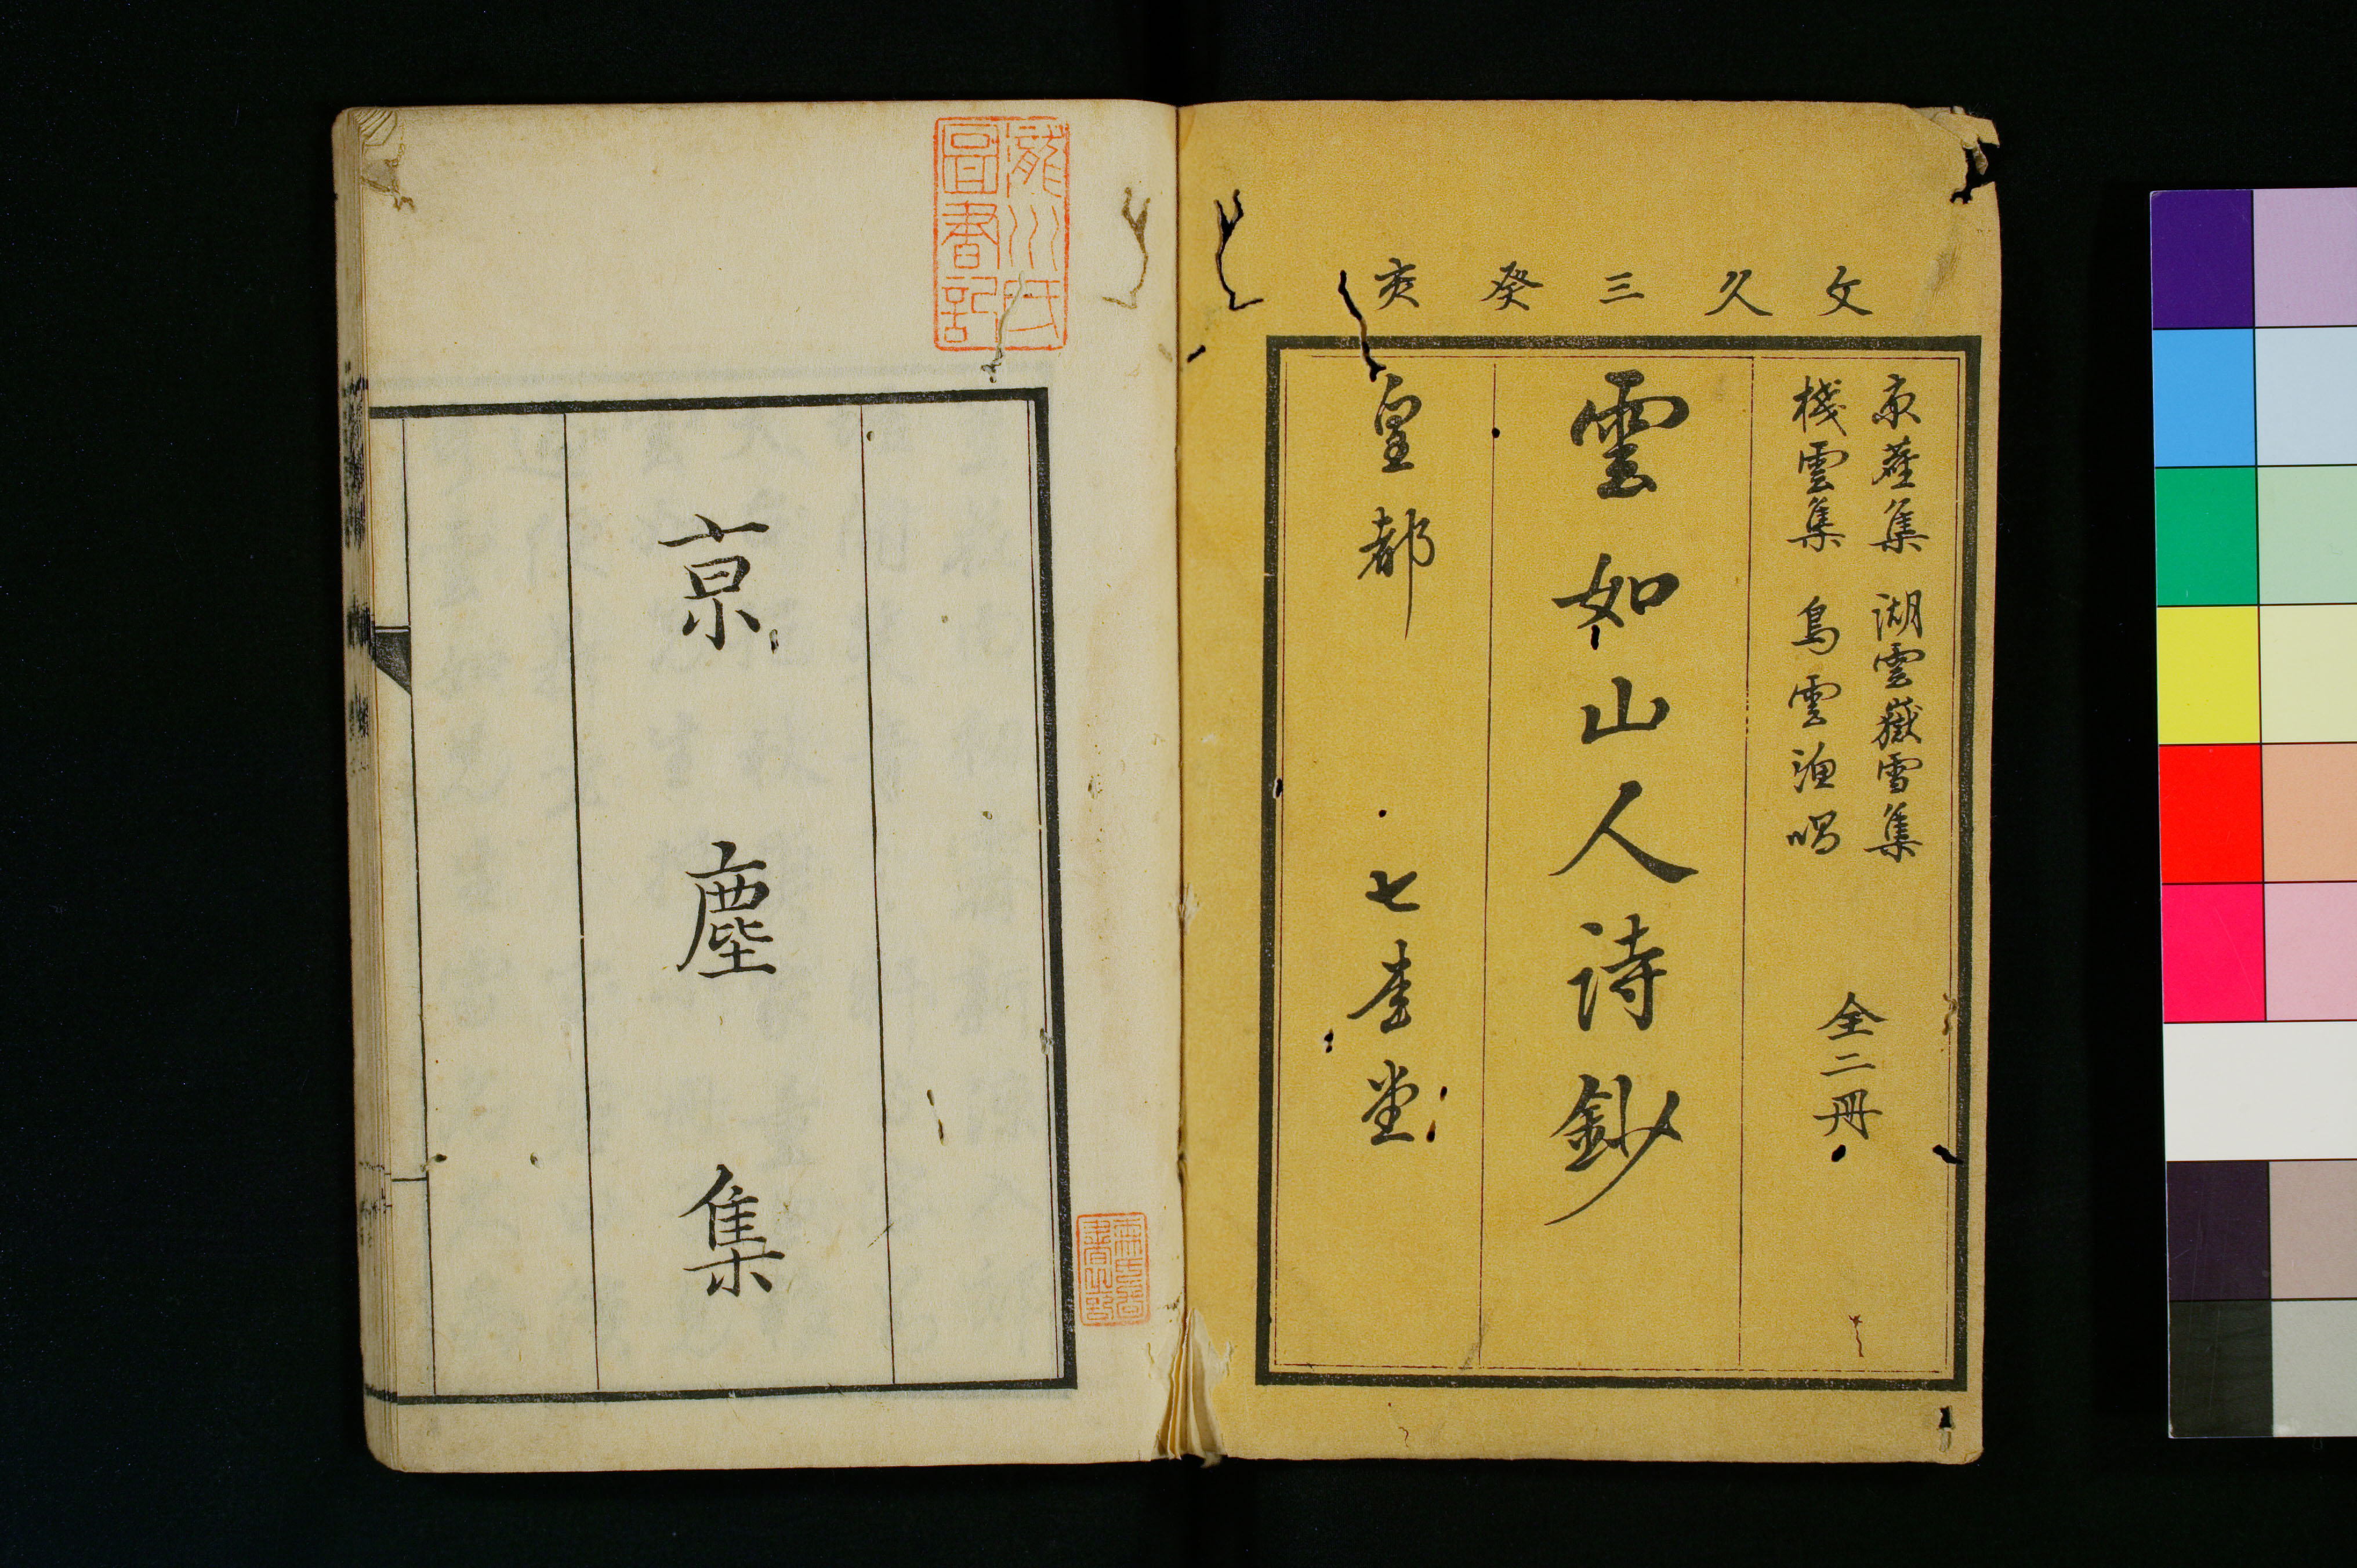 文久三癸亥
京塵集 湖雲嶽雪集
棧雲集 島雲漁唱
全二冊
雲如山人詩鈔
皇都 七 堂
瀧川氏
圖書記
京塵集